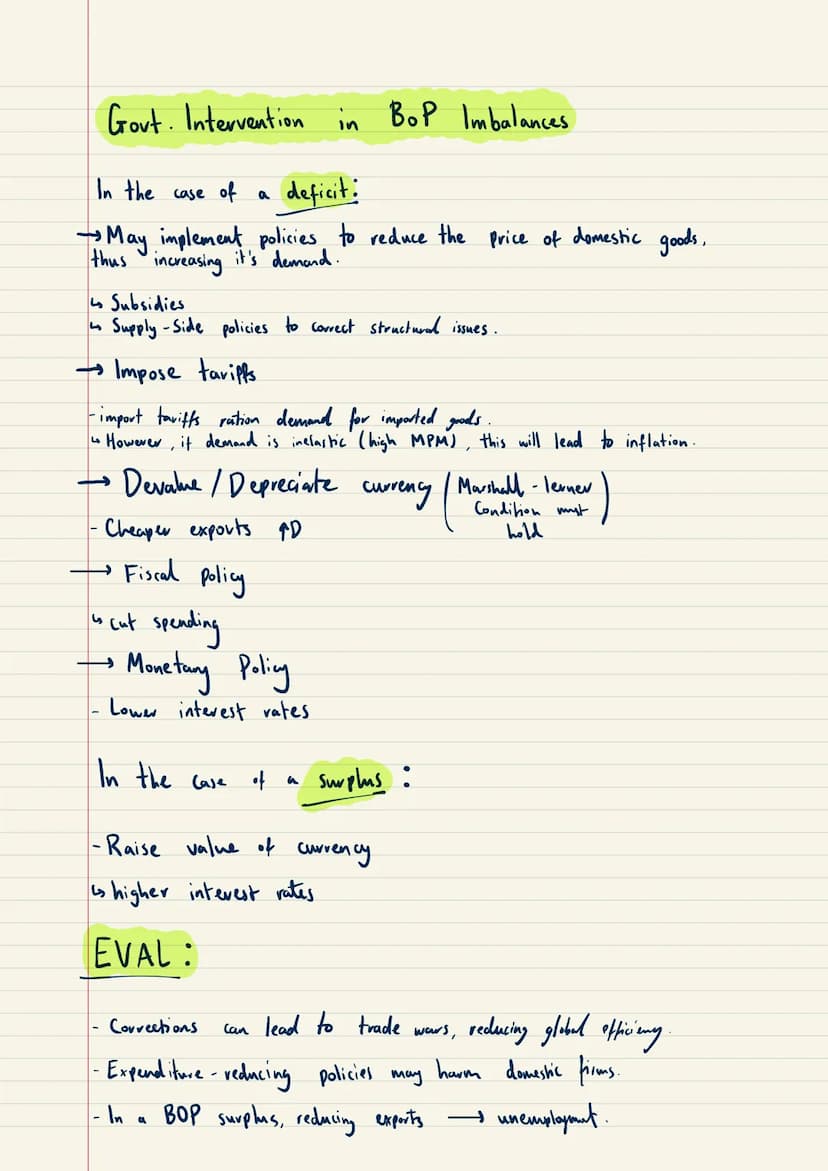 Govt. Intervention in BoP Imbalances
In the case of a deficit:
→ May implement policies to reduce the price of domestic goods,
thus increasing it's demand.
↳ Subsidies
↳ Supply-Side policies to correct structural issues.
→ Impose tariffs
- import tariffs ration demand for imported goods.
↳ However, if demand is inelastic (high MPM), this will lead to inflation.
→ Devalue / Depreciate currency (Marshall-lerner
Condition must
hold)
- Cheaper exports ↑D
→ Fiscal policy
↳ cut spending
→ Monetary Policy
- Lower interest rates
In the case of a surplus:
- Raise value of currency
↳ higher interest rates
EVAL:
- Corrections can lead to trade wars, reducing global efficiency.
- Expenditure-reducing policies may harm domestic firms.
- In a BOP surplus, reducing exports → unemployment.